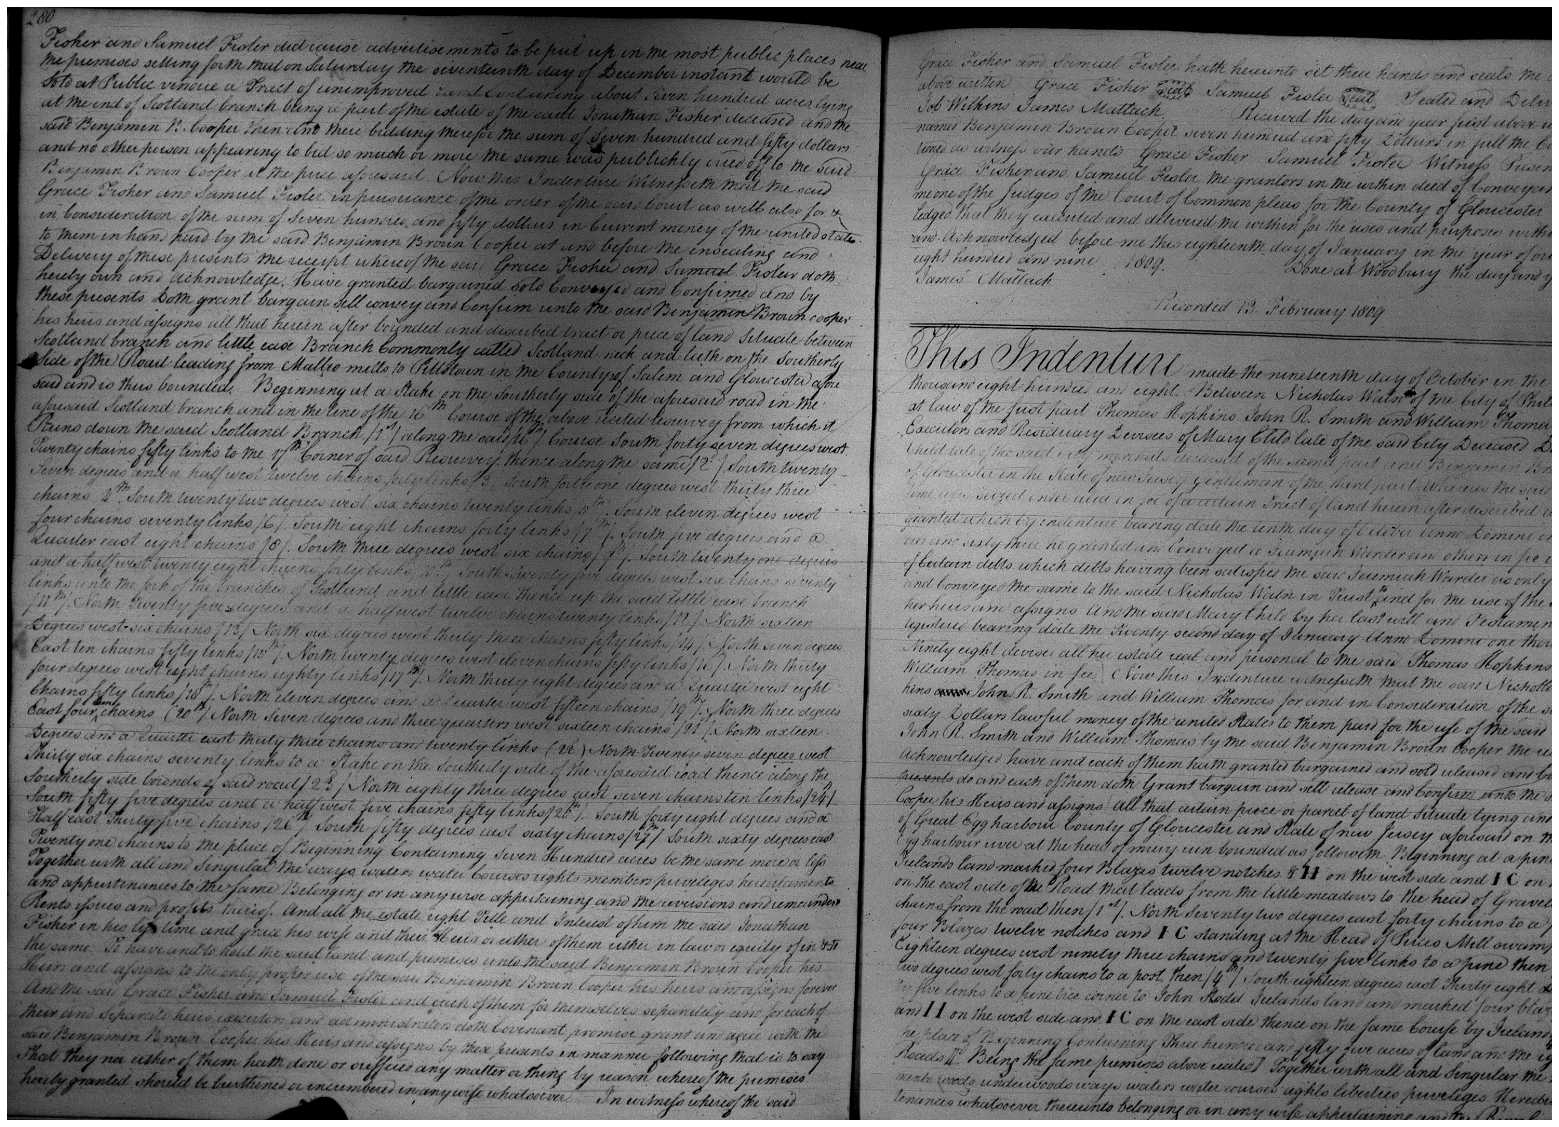 280
Fisher and Samuel Fisler did cause advertisements to be put up in the most public places near
the premises setting forth that on Saturday the seventeenth day of December instant would be
sold at Public vendue a Tract of unimproved land Containing about seven hundred acres lying
at the end of Scotland branch being a part of the estate of the said Jonathan Fisher deceased and the
said Benjamin B. Cooper then and there bidding therefor the sum of seven hundred and fifty dollars
and no other person appearing to bid so much or more the same was publickly cried off to the said
Benjamin Brown Cooper at the price aforesaid. Now this Indenture Witnesseth that the said
Grace Fisher and Samuel Fisler in pursuance of the order of the said Court as well also for &
in Consideration of the sum of seven hundred and fifty dollars in Current money of the united states
to them in hand paid by the said Benjamin Brown Cooper at and before the ensealing and
Delivery of these presents the receipt whereof the said Grace Fisher and Samuel Fisler doth
hereby own and acknowledge. Have granted bargained sold Conveyed and Confirmed and by
these presents Doth grant bargain sell convey and Confirm unto the said Benjamin Brown Cooper
his heirs and assigns all that herein after bounded and described tract or piece of land Situate between
Scotland branch and little ease Branch Commonly called Scotland neck and lieth on the Southerly
side of the Road leading from Mallio mills to Pittstown in the County of Salem and Gloucester afore
said and is thus bounded. Beginning at a Stake on the Southerly side of the aforesaid road in the
aforesaid Scotland branch and in the line of the 16th Course of the above recited resurvey from which it
Runs down the said Scotland Branch /1st/ along the said 16th Course South forty seven degrees west
Twenty chains fifty links to the 17th Corner of said Resurvey, thence along the same /2d/ South twenty
seven degrees and a half west twelve chains forty links /3/ South forty one degrees west thirty three
chains 4th South twenty two degrees west six chains twenty links /5th/. South eleven degrees west
four chains seventy links /6/. South eight chains forty links /7th/. South five degrees and a
Quarter east eight chains /8/. South three degrees west six chains /9th/. South twenty one degrees
and a half west twenty eight chains forty links /10th/. South Twenty five degrees west six chains seventy
links unto the fork of the branches of Scotland and little ease thence up the said little ease branch
/11th/. North twenty five degrees and a half west twelve chains twenty links /12/. North sixteen
Degrees west six chains /13/ North six degrees west thirty three chains fifty links /14/. North seven degrees
East ten chains fifty links /15th/. North twenty degrees west eleven chains fifty links /16/. North thirty
four degrees west eight chains eighty links /17th/. North thirty eight degrees and a Quarter west eight
Chains fifty links /18/. North eleven degrees and a Quarter west fifteen chains /19/. North three degrees
East four chains (20th) North seven degrees and three quarters west sixteen chains /21/. North sixteen
Degrees and a Quarter east thirty three chains and twenty links (22) North Twenty seven degrees west
Thirty six chains seventy links to a Stake on the Southerly side of the aforesaid road thence along the
Southerly side bounds of said road /23/ North eighty three degrees east seven chains ten links /24/
South fifty five degrees and a half west five chains fifty links /25th/. South forty eight degrees and a
Half east Thirty five chains /26th/. South fifty degrees east sixty chains /27th/ South sixty degrees east
Twenty one chains to the place of Beginning Containing Seven Hundred acres be the same more or less
Together with all and Singular the ways waters water Courses rights members priveleges hereditaments
and appurtenances to the same Belonging or in any wise appertaining and the revisions and remainders
Rents issues and profits thereof. And all the estate right Title and Interest of them the said Jonathan
Fisher in his life time and grace his wife and their Heirs or either of them either in law or equity of in & to
the same. To have and to hold the said land and premises unto the said Benjamin Brown Cooper his
Heirs and assigns to the only proper use of the said Benjamin Brown Cooper his heirs and assigns forever
And the said Grace Fisher and Samuel Fisler and each of them for themselves separately and for each of
their and Separate heirs executors and administrators doth Covenant promise grant and agree with the
said Benjamin Brown Cooper his Heirs and assigns by these presents in manner following that is to say
That they nor either of them hath done or suffered any matter or thing by reason whereof the premises
hereby granted should be burthened or incumbered in any wise whatsoever In witness whereof the said
Grace Fisher and Samuel Fisler hath hereunto set their hands and seals the
above written Grace Fisher Seal Samuel Fisler Seal Sealed and
Job Wilkins James Matlack Received the day and year first above
named Benjamin Brown Cooper seven hundred and fifty Dollars in full the
witness our hands Grace Fisher Samuel Fisler Witness
Grace Fisher and Samuel Fisler the grantors in the within deed of
me one of the Judges of the Court of Common pleas for the County of Gloucester
ledged that they executed and delivered the within for the uses and purposes
and Acknowledged before me this eighteenth day of January in the year of our
eight hundred and nine 1809. Done at Woodbury the day and
James Matlack
Recorded 13. February 1809
This Indenture made the nineteenth day of October in the
thousand eight hundred and eight. Between Nicholas Waln of the City of
at law of the first part Thomas Hopkins John R. Smith and William Thomas
Executors and Residuary Devisees of Mary Child late of the said City Deceased
Child late of the said City deceased of the second part and Benjamin
of Gloucester in the State of new Jersey gentleman of the third part Whereas the said
time was seized in fee of a certain Tract of land herein after described
granted which by indenture bearing date the tenth day of
and sixty three he granted and Conveyed to Jeremiah Warder and others in fee
of Certain debts which debts having been satisfied the said Jeremiah Warder
and Conveyed the same to the said Nicholas Waln in Trust and for the use of the
her heirs and assigns And the said Mary Child by her last will and Testament
registered bearing date the Twenty second day of January Anno Domini one
Ninety eight devised all her estate real and personal to the said Thomas Hopkins
William Thomas in fee. Now this Indenture witnesseth that the said Nicholas
kins John R. Smith and William Thomas for and in Consideration of the
sixty Dollars lawful money of the united States to them paid for the use of the said
John R. Smith and William Thomas by the said Benjamin Brown Cooper the
Acknowledged have and each of them hath granted bargained and sold released and
presents do and each of them doth Grant bargain and sell release and Confirm unto the
Cooper his Heirs and assigns all that certain piece or parcel of land Situate lying and
of Great Eggharbour County of Gloucester and State of new Jersey aforesaid on the
Eggharbour river at the head of mury run bounded as followeth Beginning at a pine
Irelands land marked four Blazes twelve notches & II on the west side and I C on
on the east side of the Road that leads from the little meadows to the head of
chains from the road then /1st/. North Seventy two degrees east forty chains to a
four Blazes twelve notches and I C standing at the Head of Prices Mill swamp
Eighteen degrees west ninety three chains and twenty five links to a pine then
two degrees west forty chains to a post then /4th/ South eighteen degrees east Thirty eight
ty five links to a pine tree corner to John Irelands land and marked four
and II on the west side and I C on the east side thence on the same Course by
the place of Beginning Containing three hundred and fifty five acres of land and the
Roads &c. Being the same premises above recited Together with all and Singular the
woods underwoods ways waters water courses rights liberties priveleges
tenances whatsoever thereunto belonging or in any wise appertaining and the